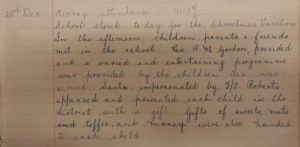 22nd Dec. Average attendance - 95.
School closed to-day for the Christmas Vacation
In the afternoon, children, parents & friends
met in the school. Rev. A. M. Gordon, presided
and a varied and entertaining programme
was provided by the children. Tea was
served. Santa, impersonated by F/O. Roberts
appeared and presented each child in the
district with a gift. Gifts of sweets, nuts
and toffee, and "money" were also handed
to each child.